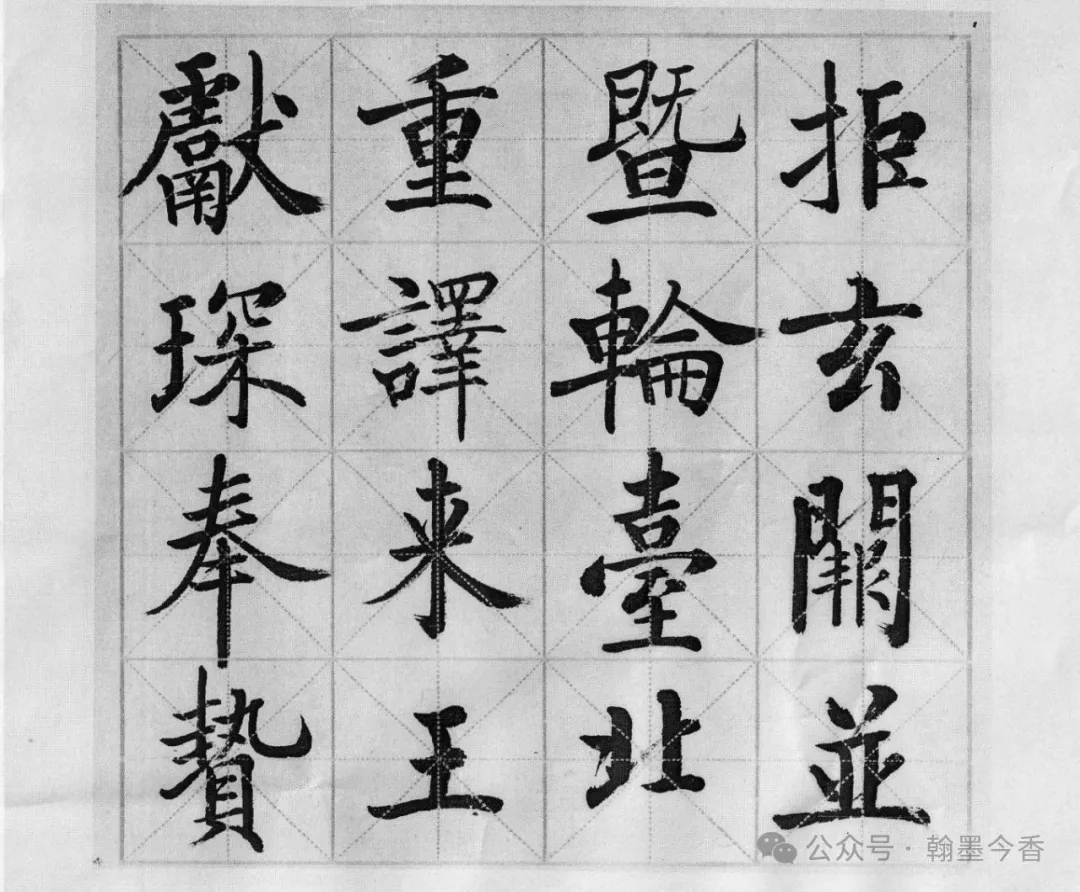 獻琛奉贄
重譯来王
暨輪臺北
拒玄闕並
公众号·翰墨今香